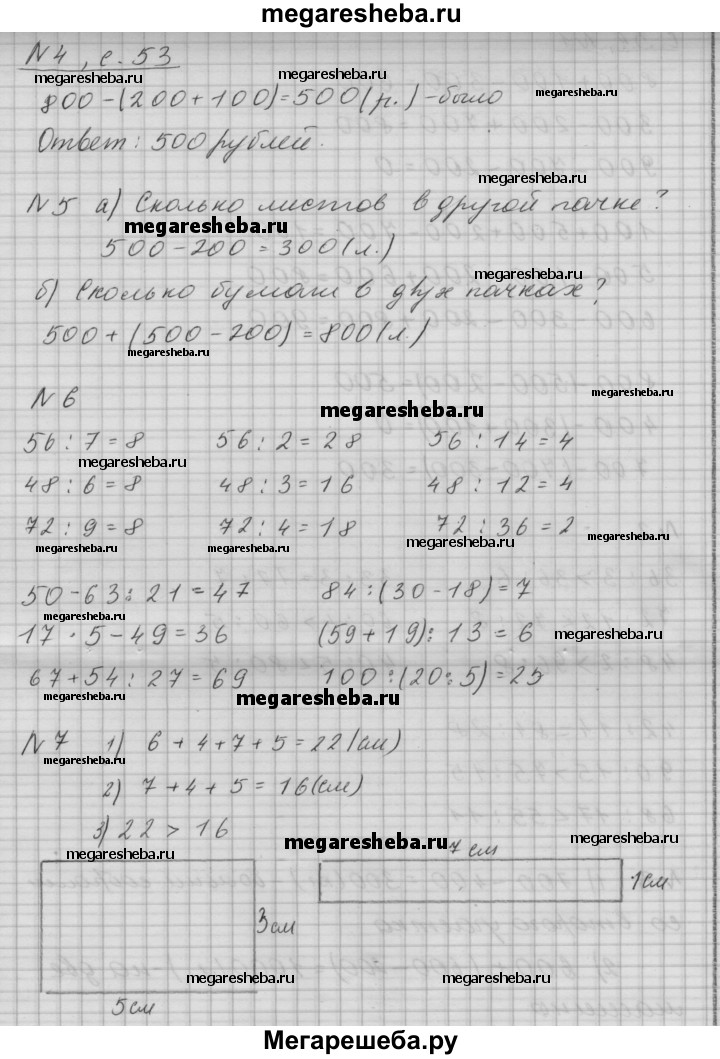 megaresheba.ru
N4, с. 53
megaresheba.ru megaresheba.ru
800-(200+100)=500(р.)-было megaresheba.ru
Ответ: 500 рублей.
megaresheba.ru
N5 а) Сколько листов в другой пачке?
megaresheba.ru
500-200=300(л.)
megaresheba.ru
б) Сколько бумаги в двух пачках?
500+(500-200)=800(л.)
megaresheba.ru
N6
megaresheba.ru
56:7=8 56:2=28 56:14=4
megaresheba.ru
48:6=8 48:3=16 48:12=4
72:9=8 72:4=18 72:36=2
megaresheba.ru megaresheba.ru megaresheba.ru megaresheba.ru
50-63:21=47 84:(30-18)=7
megaresheba.ru
17·5-49=36 (59+19):13=6 megaresheba.ru
67+54:27=69 100:(20:5)=25
megaresheba.ru megaresheba.ru
N7 1) 6+4+7+5=22(см)
megaresheba.ru
2) 7+4+5=16(см)
3) 22>16
megaresheba.ru megaresheba.ru megaresheba.ru
7 см
1см
3см
megaresheba.ru megaresheba.ru
5см
Мегарешеба.ру